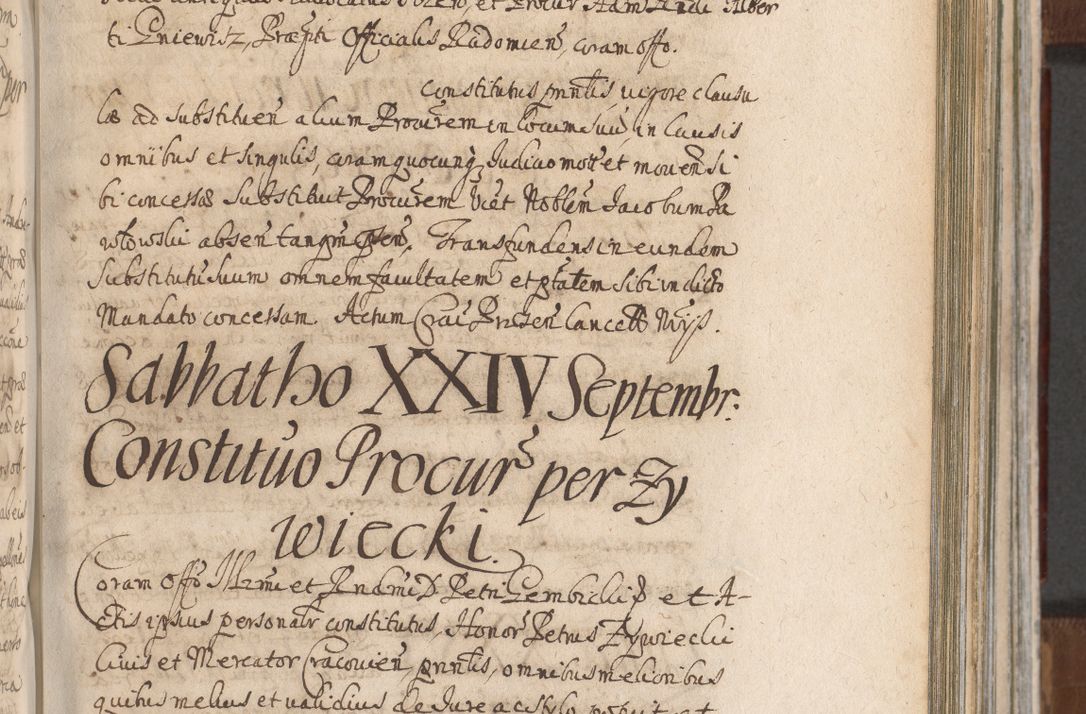 ti Gniewisz, Præfti Officialis Radomien̄, coram offo.
Constitutus pnn̄lis, vigore clausu
læ ad substituen̄ alium Procūrem in locum suū, in causis
omnibus et singulis, coram quocunq Iudicio mot̄ et mouen̄ si
bi concessæ Substituit Procūrem vid̄t Nobl̄em Jacobum Pa
włowski absen̄ tanqm̄ p̄sen̄, Transfundens in eundem
Substitutū suum omnem facultatem et p̄tatem sibi in dicto
Mandato concessam. Actum Crac̄ Presen̄
Sabbatho XXIV Septembr:
Constitūo Procur̄ per Zy
wiecki.
Coram Offo Illrmi et Rndmi D. Petri Gembicki P et A-
ctis ipsius personalr constitutus, Honor̄ Petrus Zywiecki
Ciuis et Mercator Cracouien̄, pnn̄lis, omnibus melioribus
quibus melius et validius de Jure ac stylo potuit et